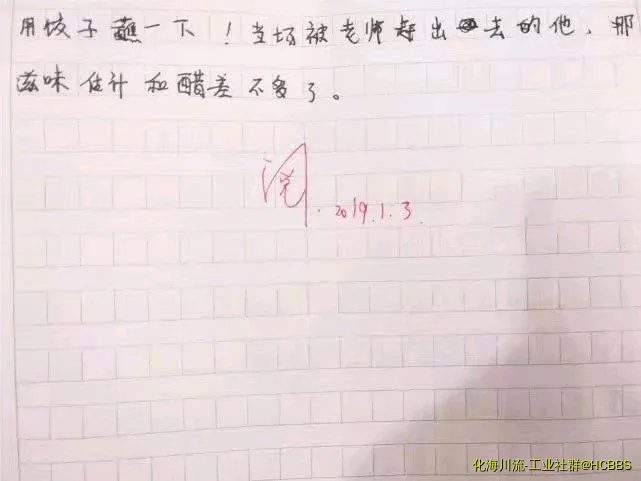 用饺子蘸一下！当场被老师赶出去的他，那
滋味估计和醋差不多了。
阅
2019.1.3.
化海川流-工业社群@HCBBS